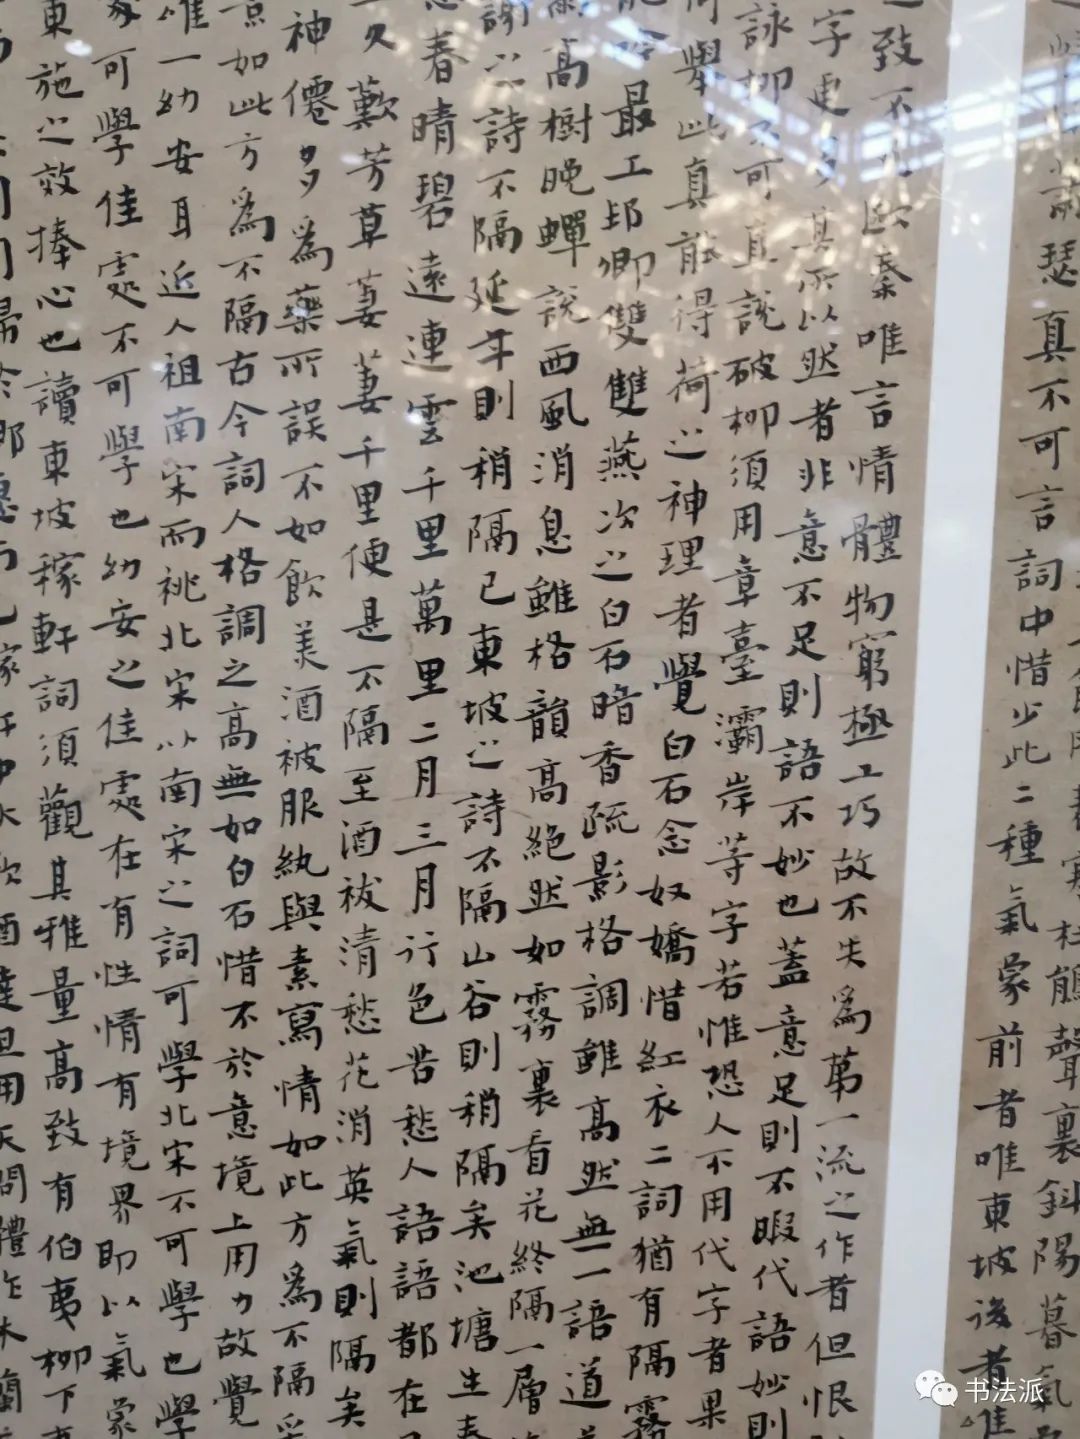 杜鵑聲裏斜陽暮氣
瑟真不可言詞中惜少此二種氣象前者唯東坡後者唯
之致不歐秦唯言情體物窮極工巧故不失為第一流之作者但恨
字更多其所以然者非意不足則語不妙也蓋意足則不暇代語妙則
詠柳不可直說破柳須用章臺灞岸等字若惟恐人不用代字者果
荷舉此真能得荷之神理者覺白石念奴嬌惜紅衣二詞猶有隔霧
最工邦卿雙雙燕次之白石暗香疏影格調雖高然無一語道
高樹晚蟬說西風消息雖格韻高絕然如霧裏看花終隔一層
謝之詩不隔延年則稍隔已東坡之詩不隔山谷則稍隔矣池塘生春
春晴碧遠連雲千里萬里二月三月行色苦愁人語語都在
久歎芳草萋萋千里便是不隔至酒祓清愁花消英氣則隔矣
神僊多為藥所誤不如飲美酒被服紈與素寫情如此方為不隔采
意如此方為不隔古今詞人格調之高無如白石惜不於意境上用力故覺
唯一幼安耳近人祖南宋而祧北宋以南宋之詞可學北宋不可學也學
家可學佳處不可學也幼安之佳處在有性情有境界即以氣象
東施之效捧心也讀東坡稼軒詞須觀其雅量高致有伯夷柳下
歸於鄉愿而已稼軒中秋飲酒達旦用天問體作木蘭
书法派